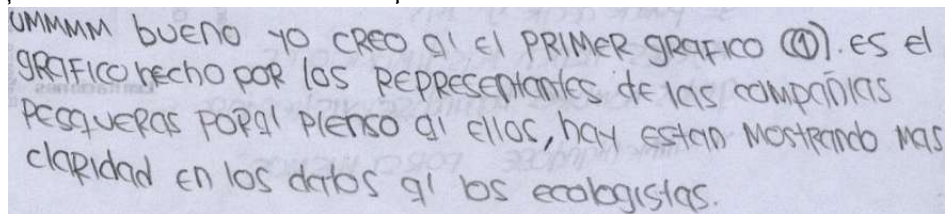 UMMMM bUENO yo CREO qi El PRIMER gRAFICO (①). ES El
gRAFICO hecho POR los REPRESENtAntES dE lAs COMPAÑiAS
PESqUERAS PORqi PIENSO qi Ellos, hay EStAn MOStRANdO MAS
ClARidAd EN los dAtos qi los Ecologistas.